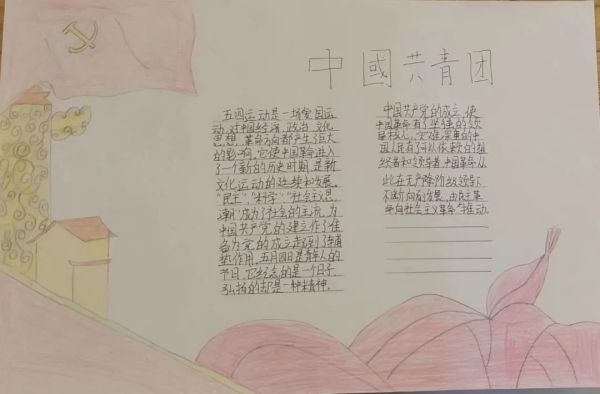 中國共青团
五四运动是一场爱国运
动,对中国经济,政治,文化
思想,革命方向都产生了巨大
的影响,它使中国革命进入
了一个新的历史时期,是新
文化运动的延续和发展。
"民主","科学","社会主义思
潮"成为了社会的主流,为
中国共产党的建立作了准
备为党的成立走到了铺
垫作用。五月四日是青年人的
节日,它纪念的是一个日子,
弘扬的却是一种精神。
中国共产党的成立,使
中国革命有了坚强的领
导核心,灾难深重的中
国人民有了可以依赖的组
织者和领导者,中国革命从
此在无产阶级领导下
不断向前发展,由民主革
命向社会主义革命推动